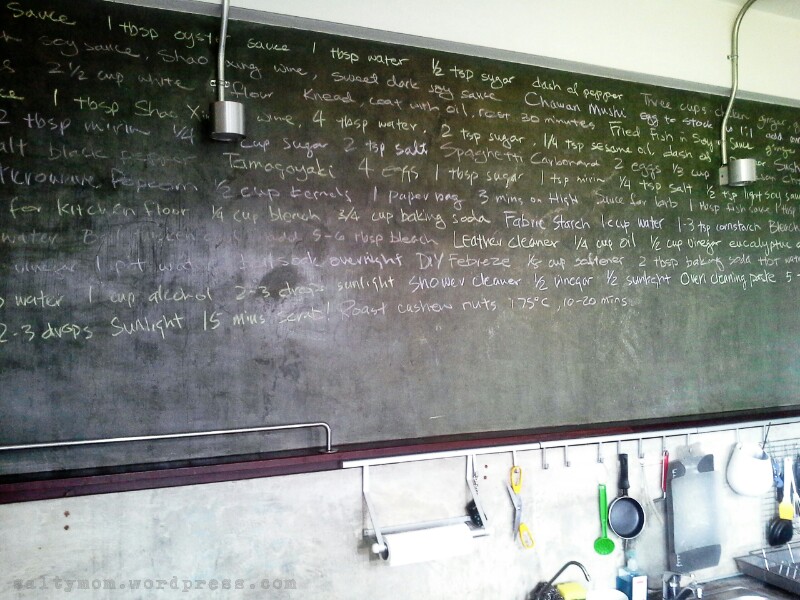 Sauce 1 tbsp oyster sauce 1 tbsp water 1/2 tsp sugar dash of pepper Three cups chicken ginger
soy sauce, Shao xing wine, sweet dark soy sauce Chawan Mushi egg to stock 1:1 add
2 1/2 cup white flour Knead, coat with oil, rest 30 minutes Fried Fish in Soy Sauce ginger
1 tbsp Shao Xing wine, 4 tbsp water, 2 tsp sugar, 1/4 tsp sesame oil, dash of
2 tbsp mirin 1/4 cup sugar 2 tsp salt Spaghetti Carbonara 2 eggs 1/3 cup
salt black pepper Tamagoyaki 4 eggs 1 tbsp sugar 1 tsp mirin 1/4 tsp salt 1/2 tsp light soy sauce
Microwave Popcorn 1/2 cup kernels 1 paper bag 3 mins on High Sauce for larb 1 tbsp fish sauce 1 tsp
for Kitchen floor 1/4 cup bleach 3/4 cup baking soda Fabric Starch 1 cup water 1-3 tsp cornstarch Bleach
water add 5-6 tbsp bleach Leather cleaner 1/4 cup oil 1/2 cup vinegar eucalyptus
vinegar 1 pot soak overnight DIY Febreze 1/3 cup softener 2 tbsp baking soda hot water
water 1 cup alcohol 2-3 drops sunlight Shower cleaner 1/2 vinegar 1/2 sunlight Oven cleaning paste 5
2-3 drops Sunlight 15 mins scrub! Roast cashew nuts 175°C, 10-20 mins
saltymom.wordpress.com